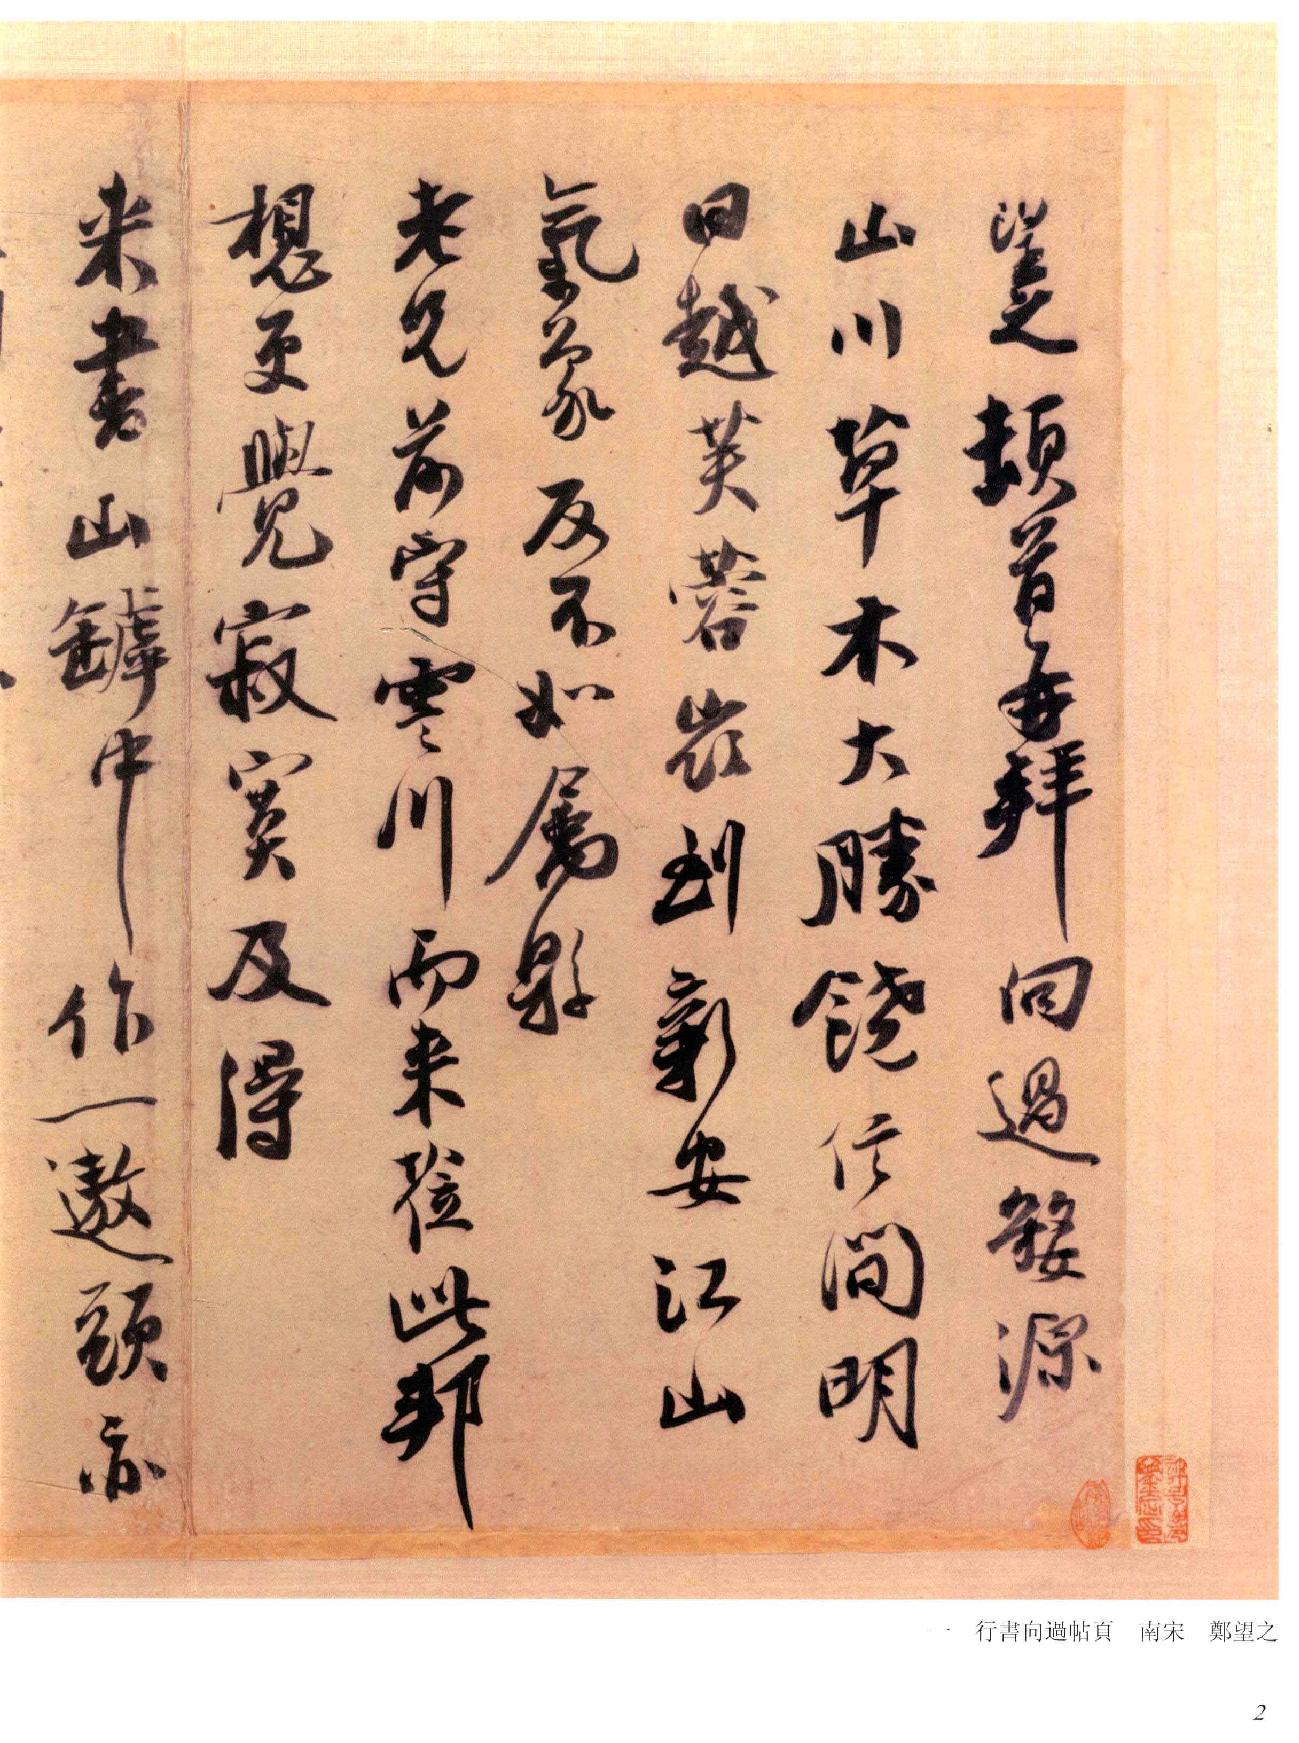 望之頓首再拜向過婺源
山川草木大勝饒信間明
日越芙蓉嶺到新安江山
氣象反不如屬縣
老兄前守霅川而來蒞此邦
想更覺寂寞及得
来書山罅中作一遨頭亦
一 行書向過帖頁 南宋 鄭望之
2